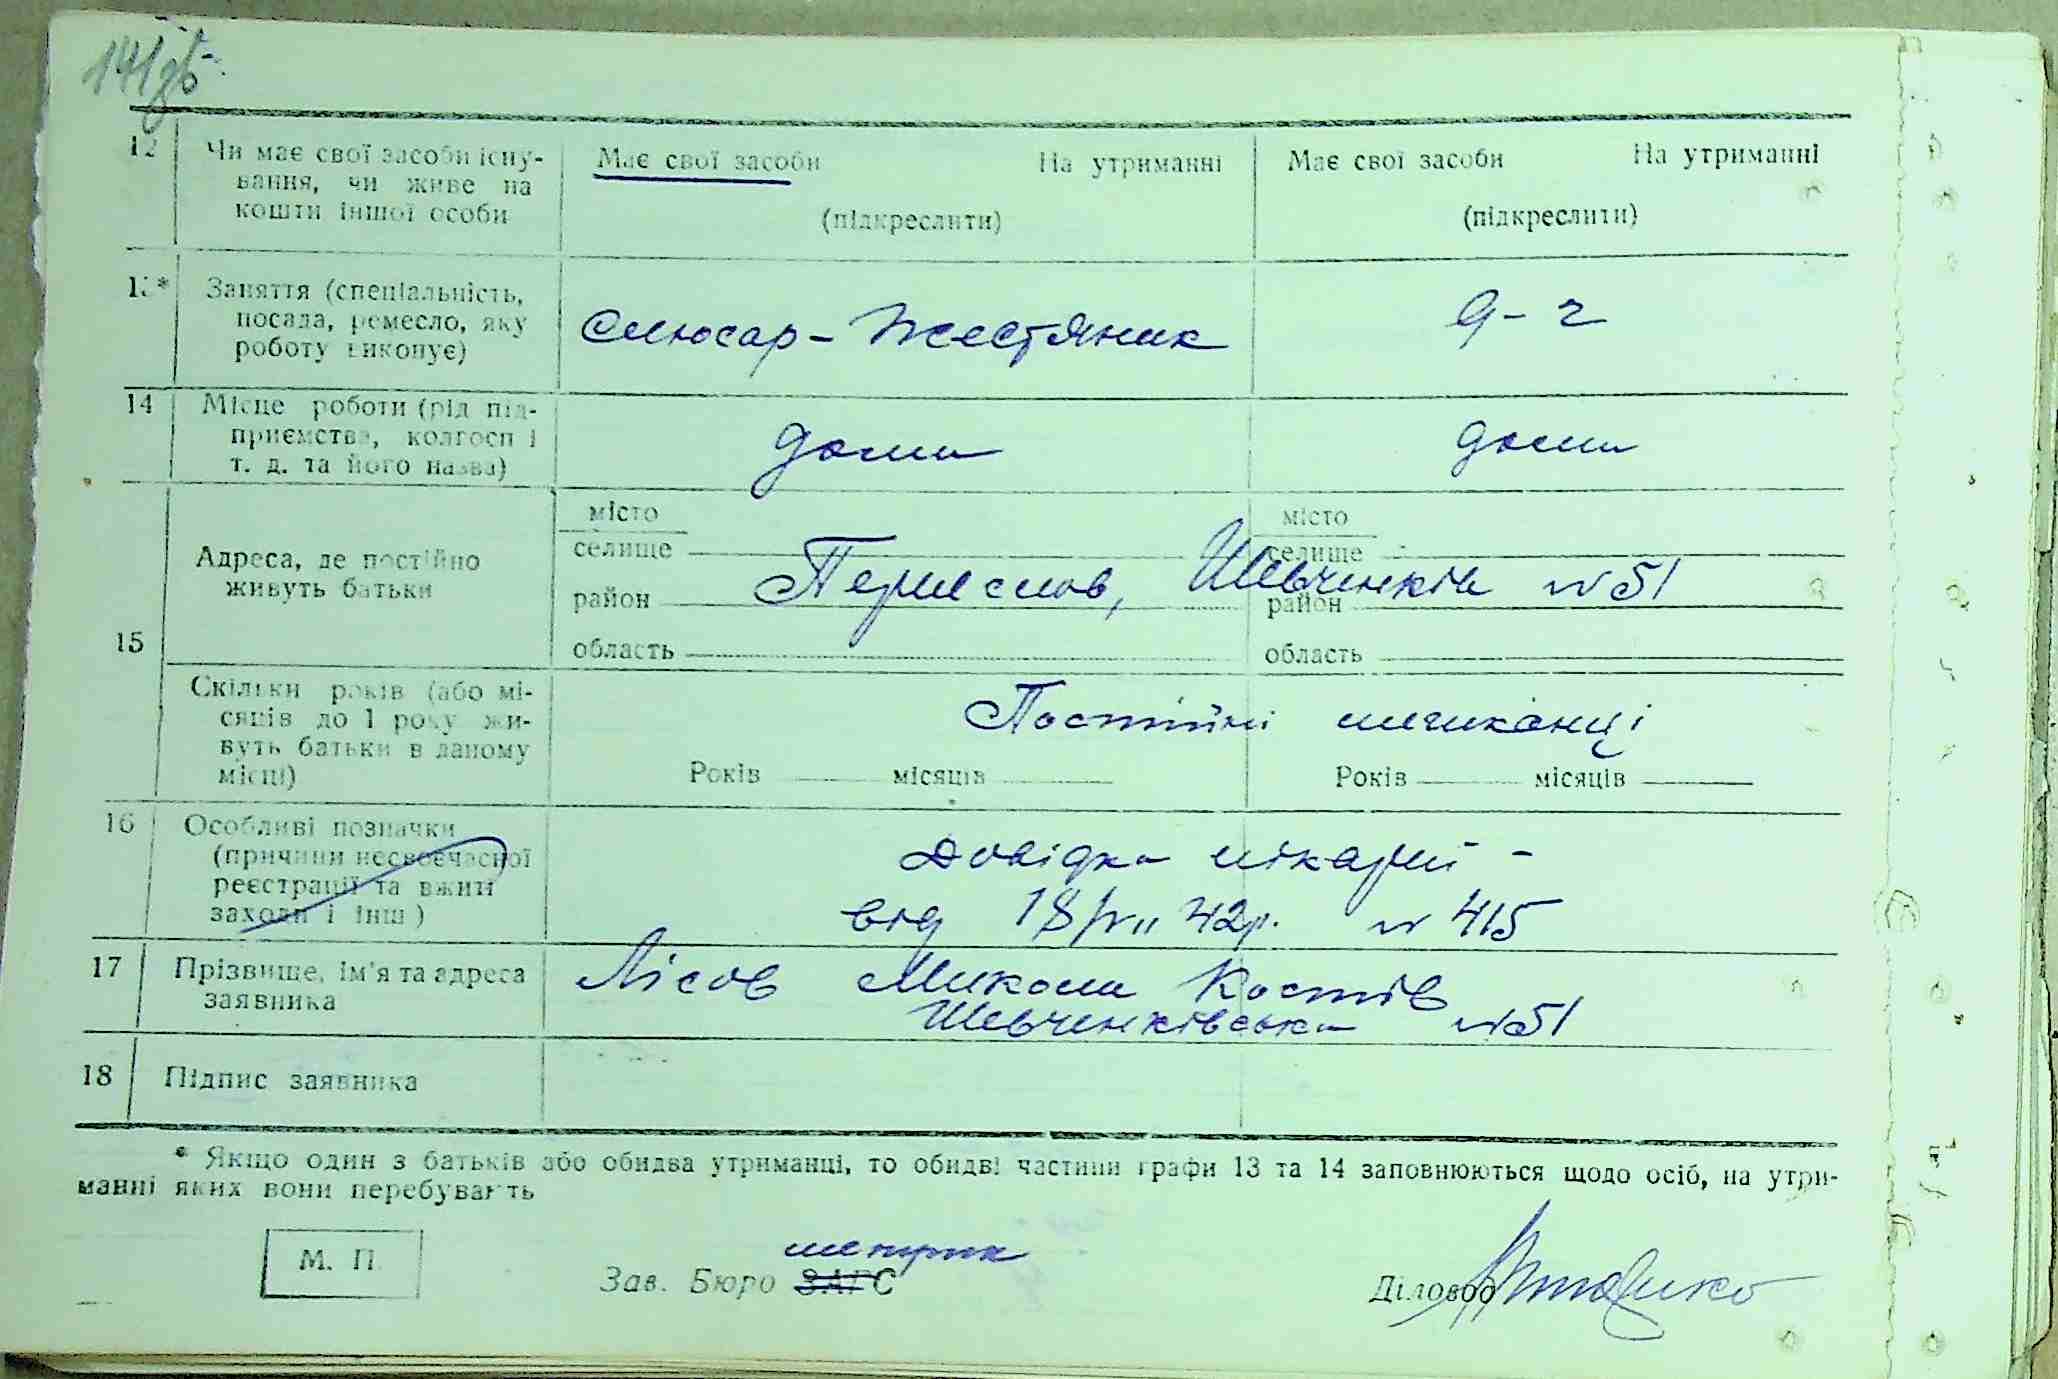 141 зв.
12 Чи має свої засоби існу- Має свої засоби На утриманні Має свої засоби На утриманні
вання, чи живе на
кошти іншої особи (підкреслити) (підкреслити)
13* Заняття (спеціальність,
посада, ремесло, яку слюсар-жестяник д-г
роботу виконує)
14 Місце роботи (рід під-
приємства, колгосп і дома дома
т. д. та його назва)
місто місто
селище селище
Адреса, де постійно
живуть батьки
район Переяслов, Шевченків № 51 район
15 область область
Скільки років (або мі-
сяців до 1 року жи- Постійні мешканці
вуть батьки в даному
місці) Років місяців Років місяців
16 Особливі позначки
(причини несвоєчасної Довідка лікарні -
реєстрації та вжиті
заходи і інш) від 18/VII 42р. № 415
17 Прізвище, ім'я та адреса Лісов Микола Костів
заявника Шевченківська № 51
18 Підпис заявника
* Якщо один з батьків або обидва утриманці, то обидві частини графи 13 та 14 заповнюються щодо осіб, на утри-
манні яких вони перебувають
метрик
М. П. Зав. Бюро ЗАГС Діловод